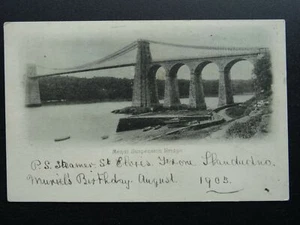 MENAI SUSPENSION BRIDGE
P.S. Steamer. St Elvies. From. Llandudno.
Muriel's Birthday. August 1903.